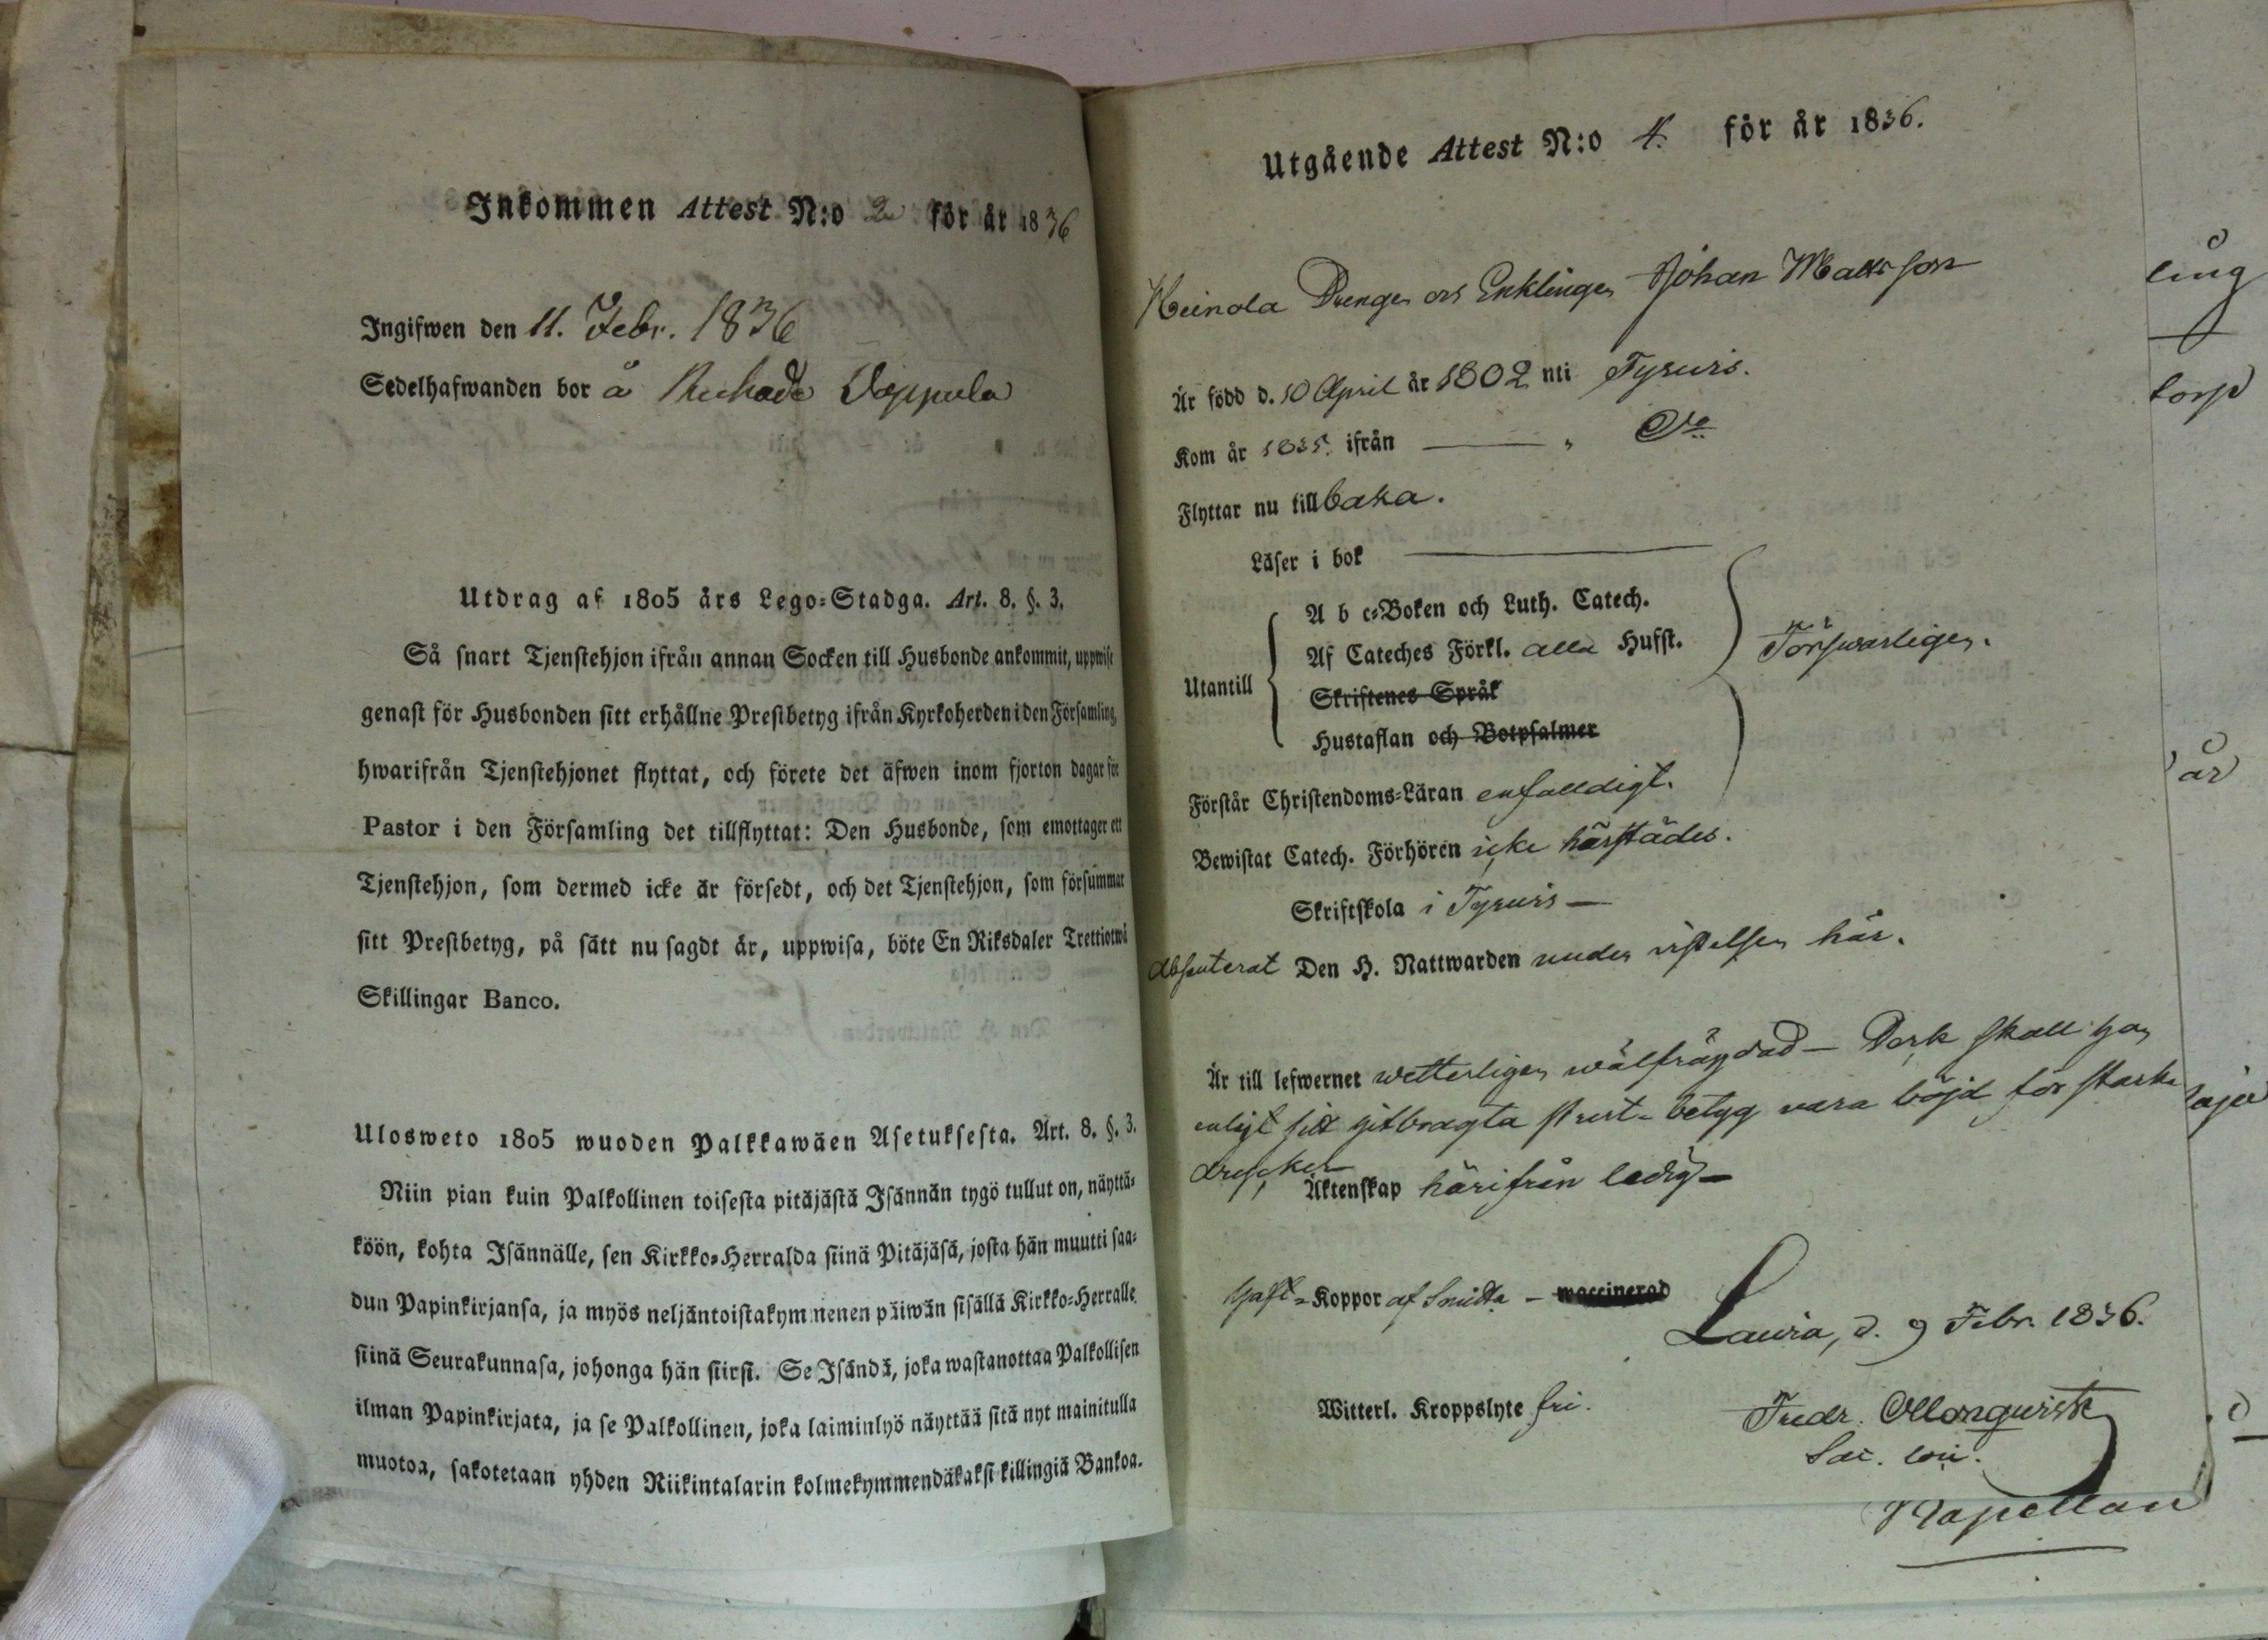 Inkommen Attest N:o 2 för år 1836
Ingifwen den 11. Febr. 1836
Sedelhafwanden bor å Wäppula
Utdrag af 1805 års Lego-Stadga. Art. 8. §. 3.
Så snart Tjenstehjon ifrån annan Socken till Husbonde ankommit, uppwise
genast för Husbonden sitt erhållne Prestbetyg ifrån Kyrkoherden i den Församling,
hwarifrån Tjenstehjonet flyttat, och förete det äfwen inom fjorton dagar för
Pastor i den Församling det tillflyttat: Den Husbonde, som emottager ett
Tjenstehjon, som dermed icke är försedt, och det Tjenstehjon, som försummar
sitt Prestbetyg, på sätt nu sagdt är, uppwisa, böte En Riksdaler Trettiotwå
Skillingar Banco.
Ulosweto 1805 wuoden Palkkawäen Asetuksesta. Art. 8. §. 3.
Niin pian kuin Palkollinen toisesta pitäjästä Isännän tygö tullut on, näyttä-
köön, kohta Isännälle, sen Kirkko-Herralda siinä Pitäjäsä, josta hän muutti saa-
dun Papinkirjansa, ja myös neljäntoistakymmenen päiwän sisällä Kirkko-Herralle
siinä Seurakunnasa, johonga hän siirsi. Se Isändä, joka wastanottaa Palkollisen
ilman Papinkirjata, ja se Palkollinen, joka laiminlyö näyttää sitä nyt mainitulla
muotoa, sakotetaan yhden Riikintalarin kolmekymmendäkaksi killingiä Bankoa.
Utgående Attest N:o 4. för år 1836.
Heinola Drengen och Enklingen Johan Matts son
Är född d. 10 April år 1802 uti Tyrwis.
Kom år 1835. ifrån — " Do
Flyttar nu tillbaka.
Läser i bok —
Utantill
A b c-Boken och Luth. Catech.
Af Cateches Förkl. alla Hufst.
Skriftenes Språk
Hustaflan och Botpsalmer
Förswarligen.
Förstår Christendoms-Läran enfalldigt.
Bewistat Catech. Förhören icke härstädes.
Skriftskola i Tyrwis —
absenterat Den H. Nattwarden under wistelsen här.
Är till lefwernet wetterligen wälfrägdad — Dock skall han
enligt sitt hitbragta prest-betyg vara böjd för starka
drycker
Äktenskap härifrån ledig —
Haft-Koppor af Smitta — waccinerad
Lawia, d. 9 Febr. 1836.
Witterl. Kroppslyte fri.
Fredr. Ollonqwist
Kapellan
ling
torp
år